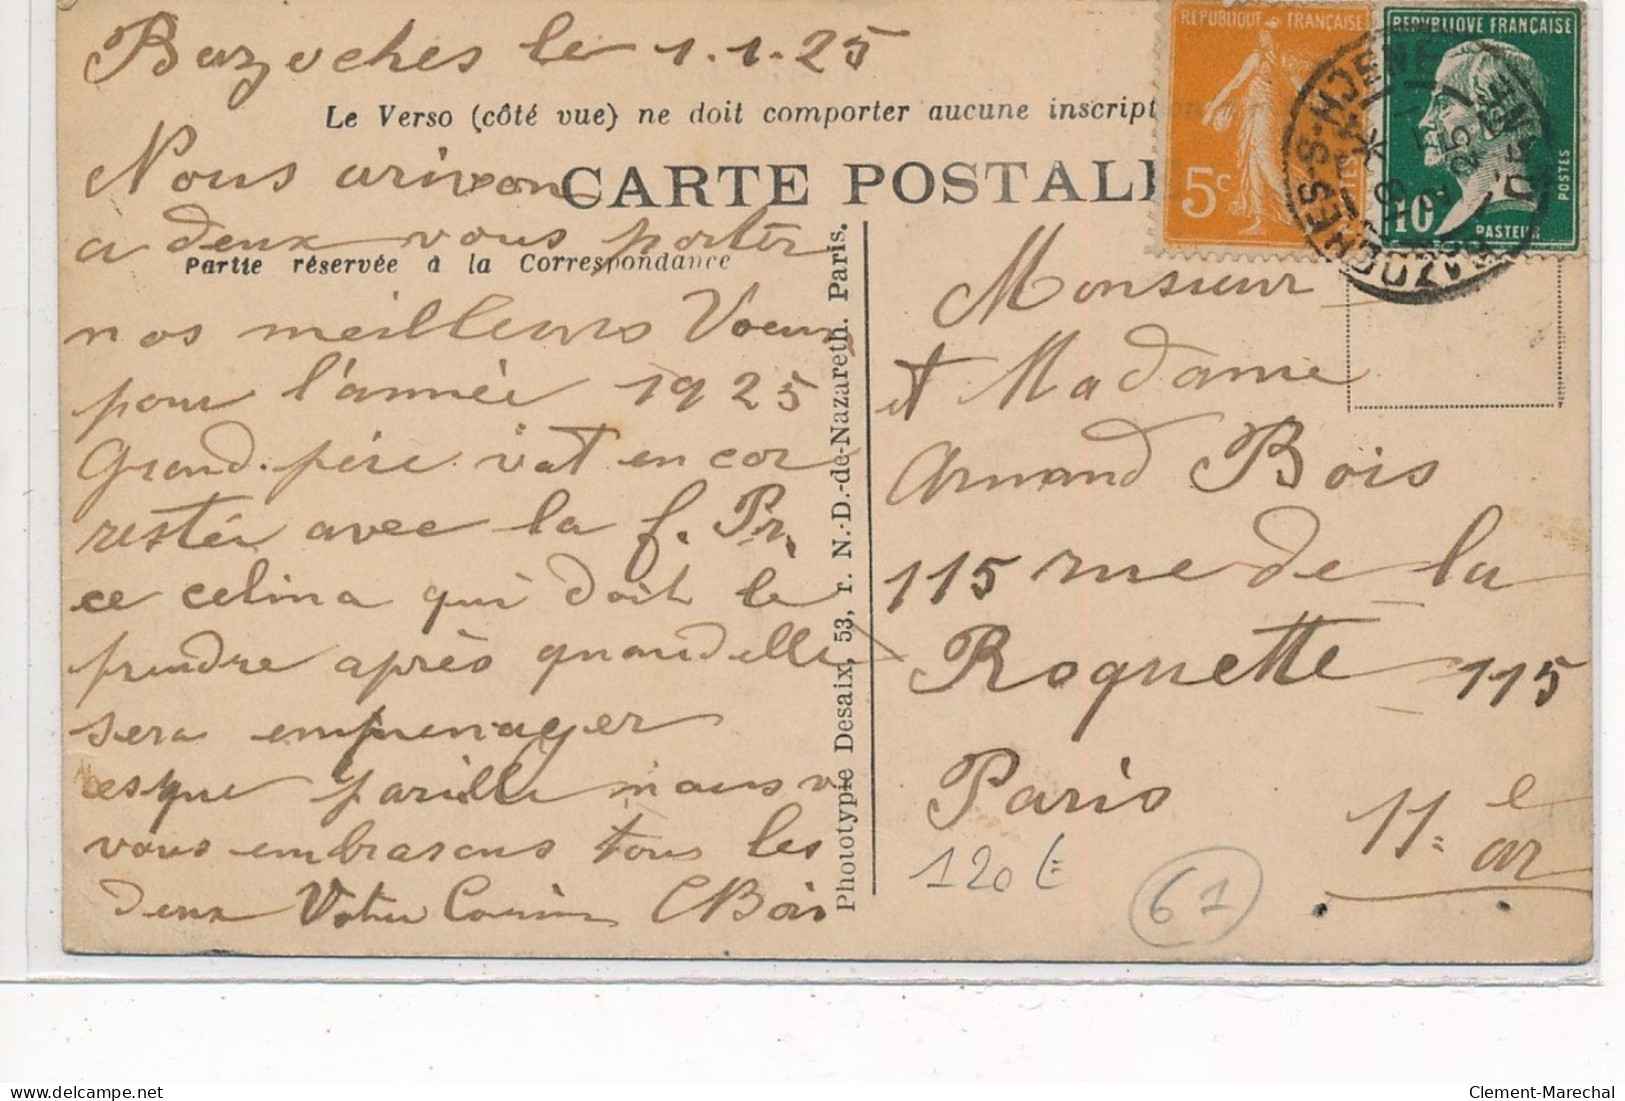 Bazoches le 1.1.25
Le Verso (côté vue) ne doit comporter aucune inscript
CARTE POSTAL
Nous arivon
a deux vous porter
Partie réservée à la Correspondance
nos meilleurs Voeux
pour l'année 1925
Grand.père vat encor
rester avec la f. Pr.
ce celina qui doit le
prendre après quand elle
sera emmenager
vous embrasons tous les
deux Votre Cousin CBois
Phototypie Desaix, 53, r. N.-D.-de-Nazareth. Paris.
REPUBLIQUE FRANÇAISE
5c
REPVBLIQVE FRANÇAISE
10c
PASTEUR
POSTES
Monsieur
et Madame
Armand Bois
115 rue de la
Roquette 115
Paris
11e ar
120 E
61
Clement-Marechal